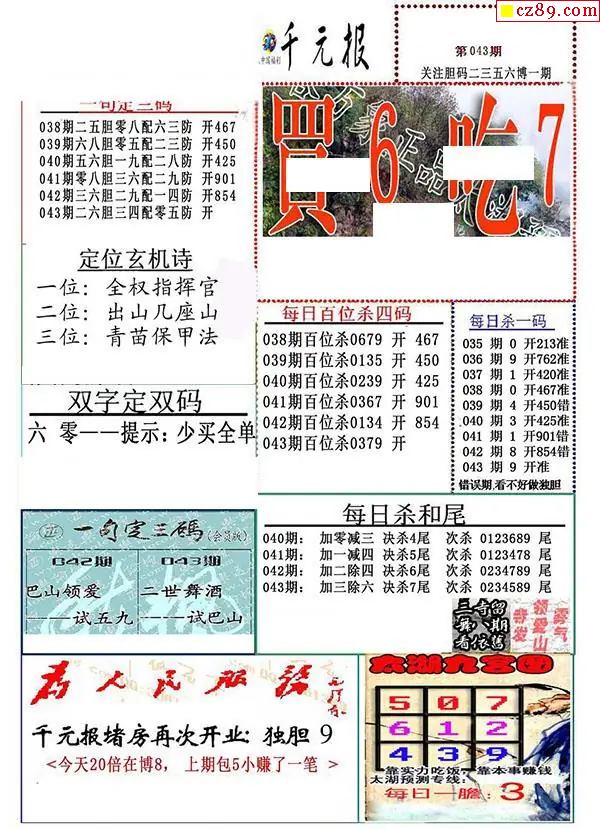 cz89.com
千元报
第043期
关注胆码二三五六博一期
一句定三码
038期二五胆零八配六三防 开467
039期六八胆零五配二三防 开450
040期五六胆一九配二八防 开425
041期零八胆三六配二九防 开901
042期三六胆二九配一四防 开854
043期二六胆三四配零五防 开
買6吃7
定位玄机诗
一位: 全权指挥官
二位: 出山几座山
三位: 青苗保甲法
每日百位杀四码
038期百位杀0679 开 467
039期百位杀0135 开 450
040期百位杀0239 开 425
041期百位杀0367 开 901
042期百位杀0134 开 854
043期百位杀0379 开
每日杀一码
035 期 0 开213准
036 期 9 开762准
037 期 1 开420准
038 期 0 开467准
039 期 4 开450错
040 期 3 开425准
041 期 1 开901错
042 期 8 开854错
043 期 9 开准
错误期,看不好做独胆
双字定双码
六 零——提示: 少买全单
每日杀和尾
040期: 加零减三 决杀4尾 次杀 0123689 尾
041期: 加一减四 决杀5尾 次杀 0123478 尾
042期: 加二除四 决杀6尾 次杀 0234789 尾
043期: 加三除六 决杀7尾 次杀 0234589 尾
一句定三碼(会员版)
042期
043期
巴山领爱
二世舞酒
——试五九
——试巴山
为人民服务
千元报堵房再次开业: 独胆 9
<今天20倍在博8, 上期包5小赚了一笔 >
太湖九宫图
5 0 7
6 1 2
4 3 9
靠实力吃饭, 靠本事赚钱
太湖预测专线:
每日一膽: 3